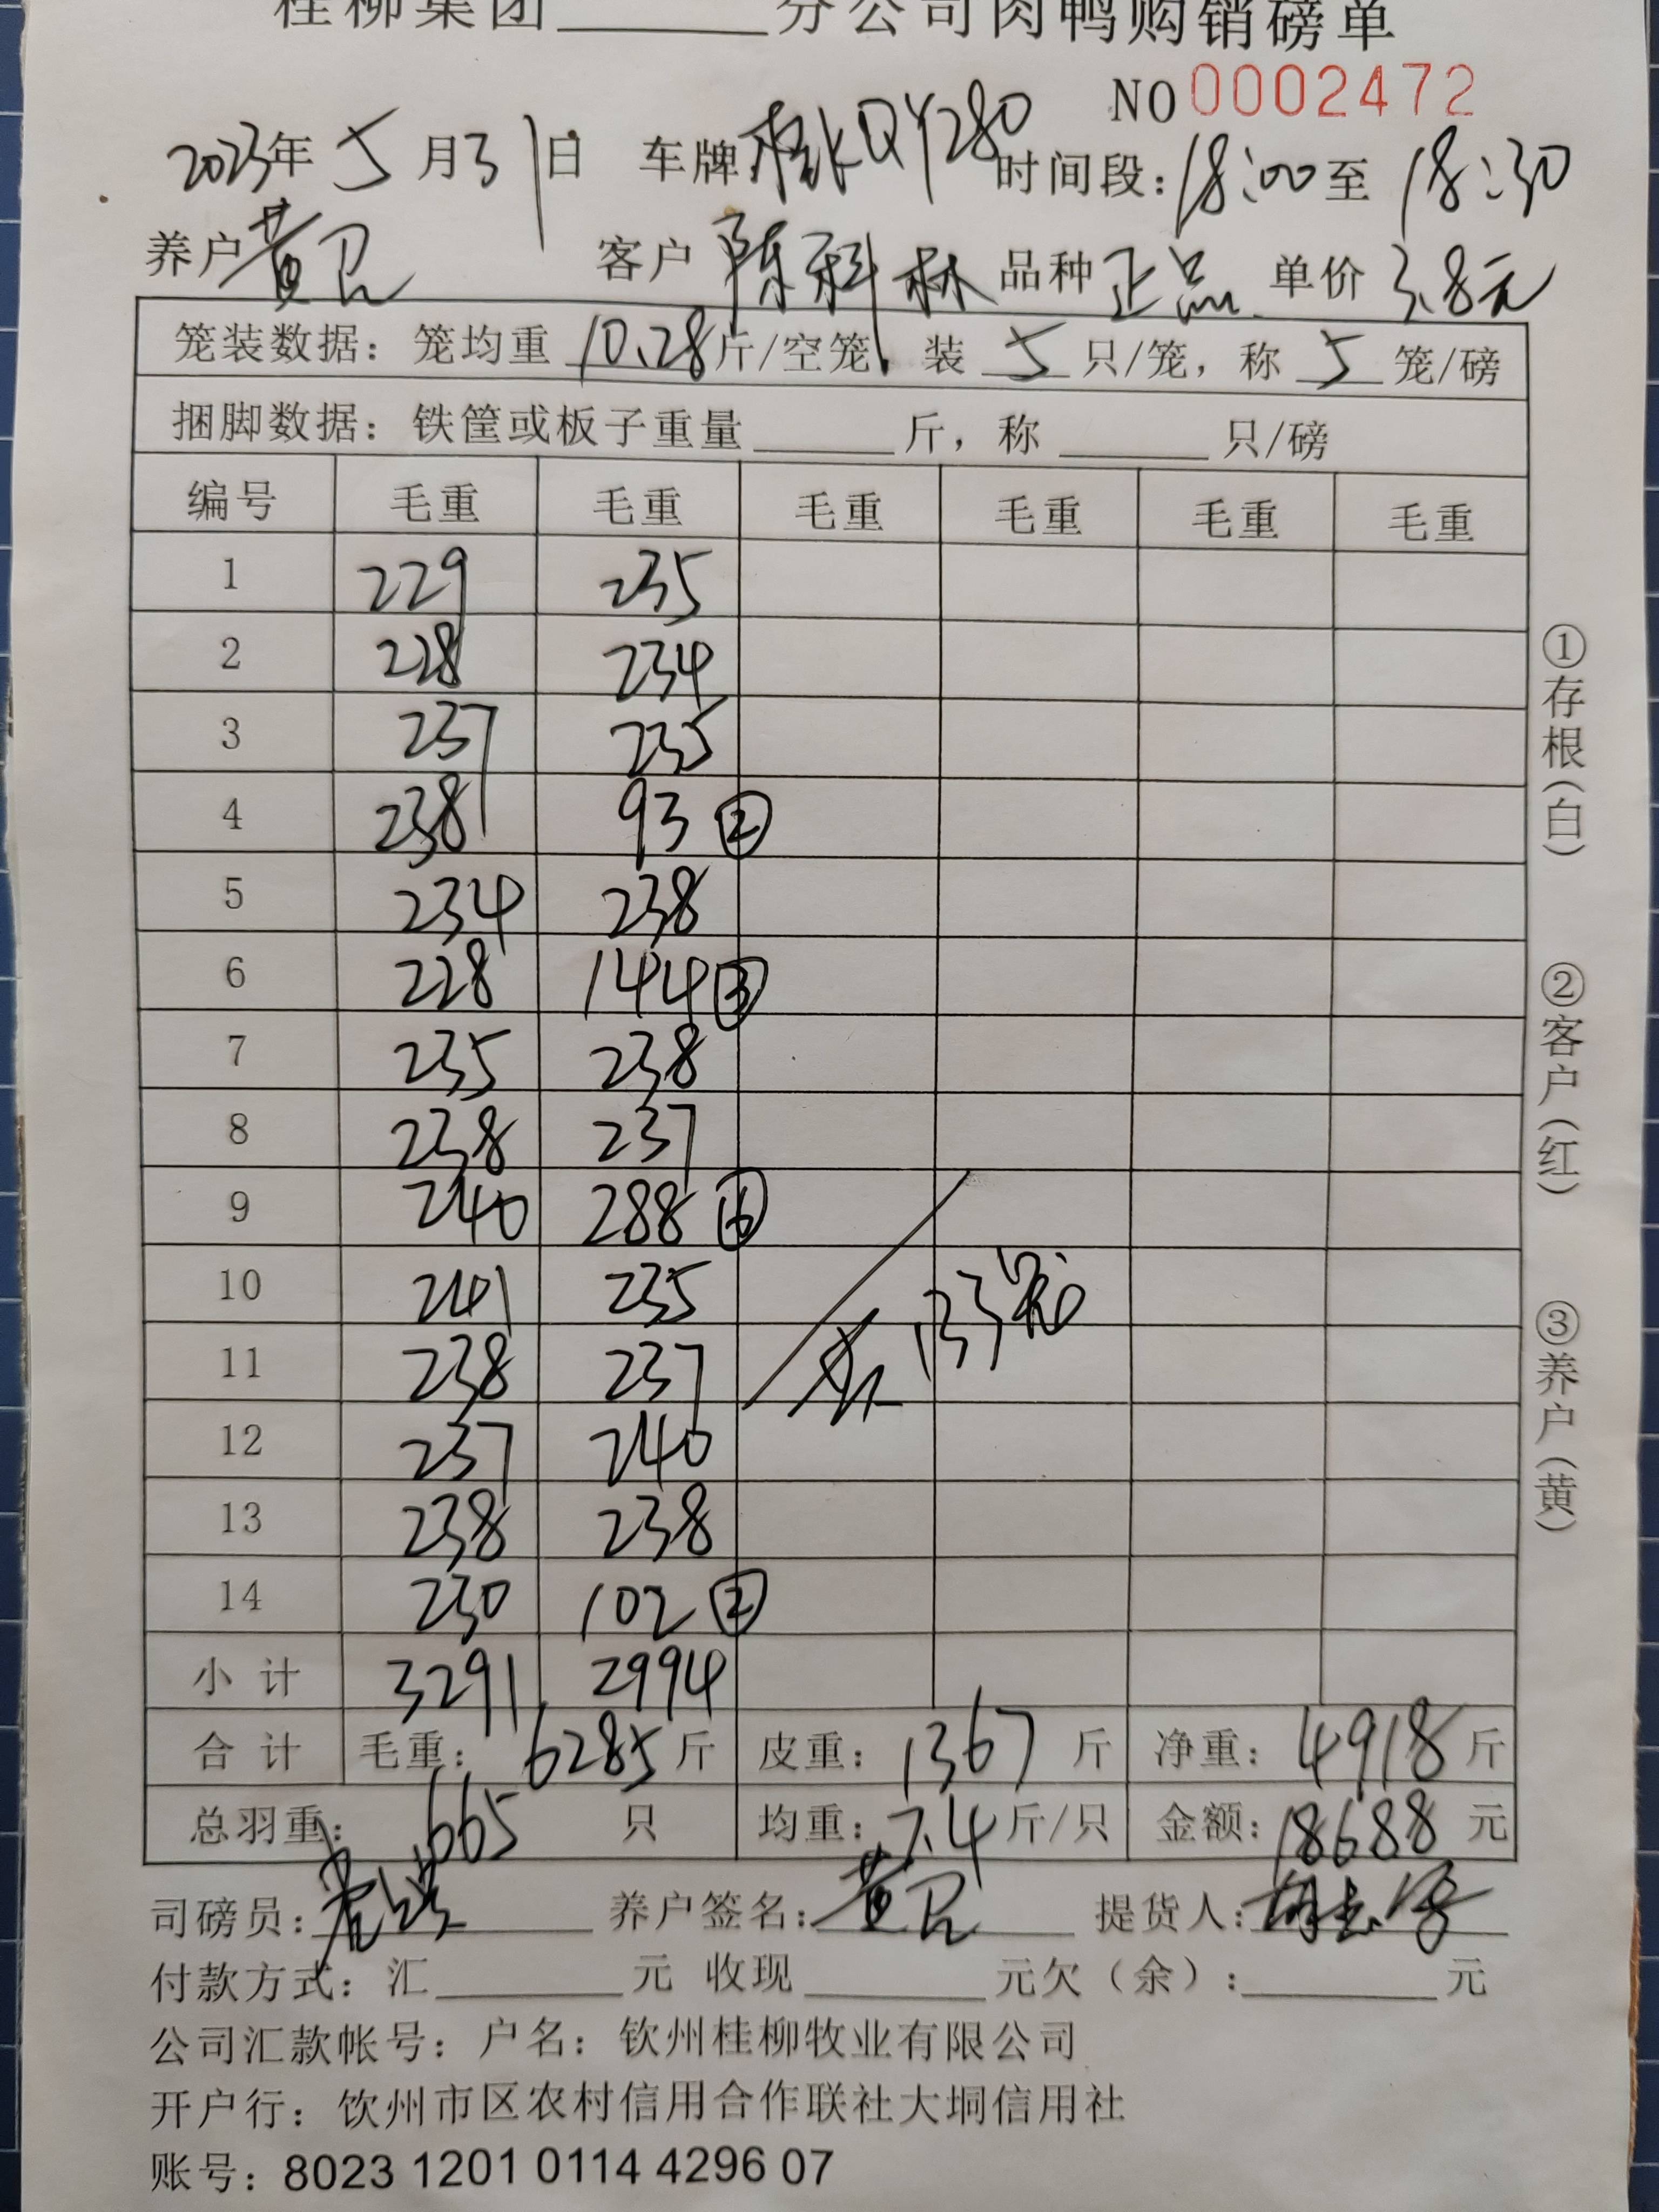 桂柳集团______分公司肉鸭购销磅单
NO 0002472
2023年 5 月31日 车牌 桂KQY280 时间段：18:00至 18:30
养户 黄卫 客户 陈科林 品种 正品 单价 3.8元
笼装数据：笼均重 10.28斤/空笼，装 5 只/笼，称 5 笼/磅
捆脚数据：铁筐或板子重量______斤，称______只/磅
编号 毛重 毛重 毛重 毛重 毛重 毛重
1 229 235
2 228 234
3 237 235
4 238 93 ②
5 234 238
6 228 144 ③
7 235 238
8 238 237
9 240 288 ⑥
10 241 235
11 238 237
共133笼
12 237 240
13 238 238
14 230 102 ②
小 计 3291 2994
合 计 毛重：6285斤 皮重：1367 斤 净重：4918斤
总羽重：665 只 均重：7.4斤/只 金额：18688 元
司磅员： 养户签名：黄卫 提货人：
付款方式：汇______元 收现______元欠（余）：______元
公司汇款帐号：户名：钦州桂柳牧业有限公司
开户行：钦州市区农村信用合作联社大垌信用社
账号：8023 1201 0114 4296 07
①存根（白）
②客户（红）
③养户（黄）